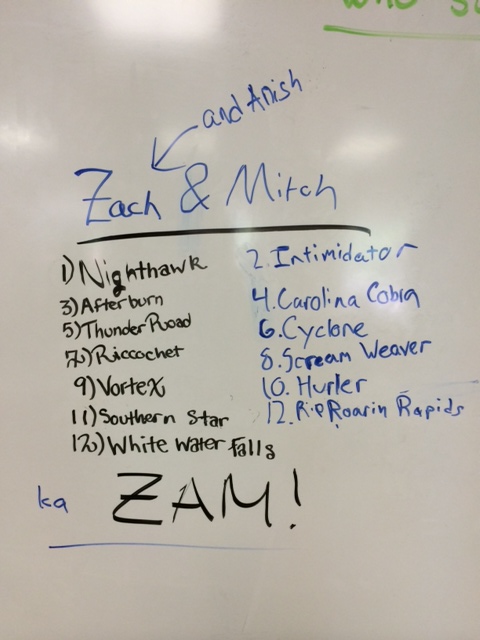 and Anish
Zach & Mitch
1) Nighthawk
2. Intimidator
3) Afterburn
4. Carolina Cobra
5) Thunder Road
6. Cyclone
7) Riccochet
8. Scream Weaver
9) Vortex
10. Hurler
11) Southern Star
12. Rip Roarin Rapids
White Water Falls
ka ZAM!